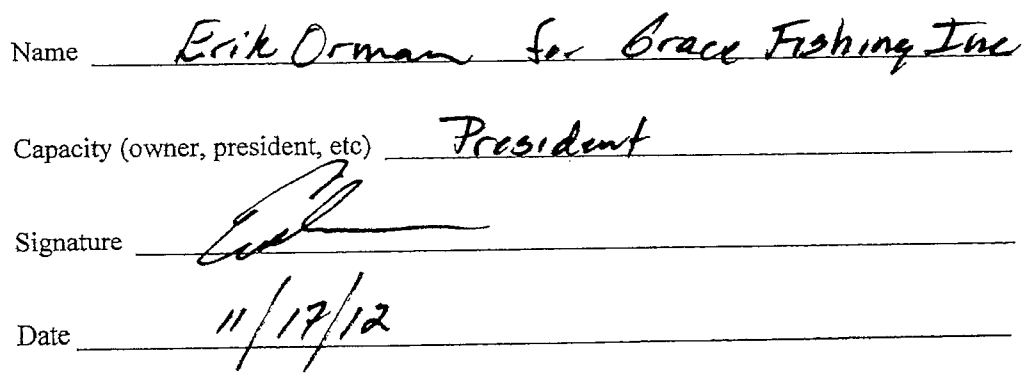 Name Erik Orman for Grace Fishing Inc
Capacity (owner, president, etc) President
Signature
Date 11/17/12